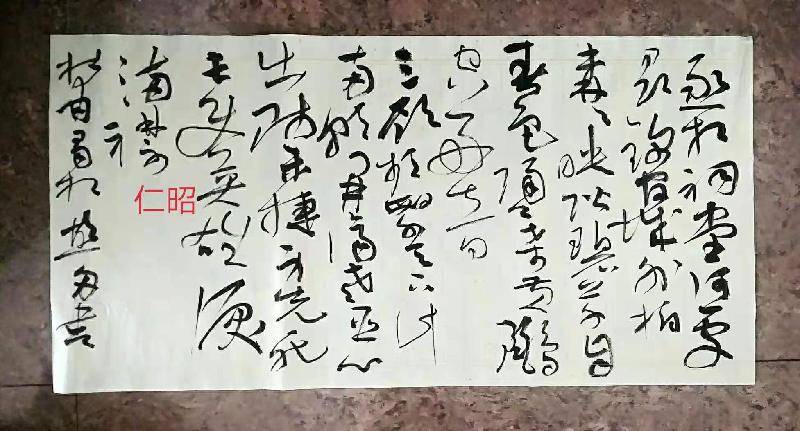 丞相祠堂何處
尋錦官城外柏
森々映階碧草自
春色隔葉黃鸝
空好音
三顧頻繁天下計
兩朝開濟老臣心
出師未捷身先死
長使英雄淚
滿襟
杜甫蜀相
仁昭